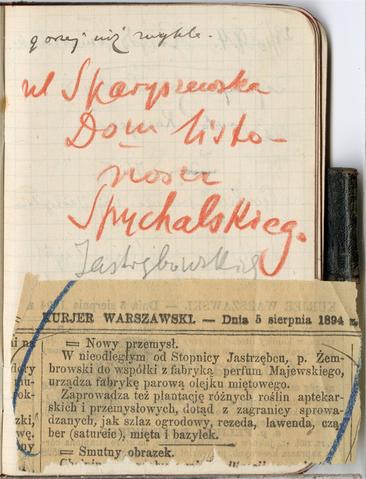 gorzej niż zwykle.
ul Skaryszewska
Dom listo-
nosza
Spychalskiego.
Jastrzębowskie
KURJER WARSZAWSKI. — Dnia 5 sierpnia 1894 r.
= Nowy przemysł.
W nieodległym od Stopnicy Jastrzębcu, p. Żem-
browski do wspólki z fabryką perfum Majewskiego,
urządza fabrykę parową olejku miętowego.
Zaprowadza też plantację różnych roślin aptekar-
skich i przemysłowych, dotąd z zagranicy sprowa-
dzanych, jak szlaz ogrodowy, rezeda, lawenda, czą-
ber (satureie), mięta i bazylek.
= Smutny obrazek.